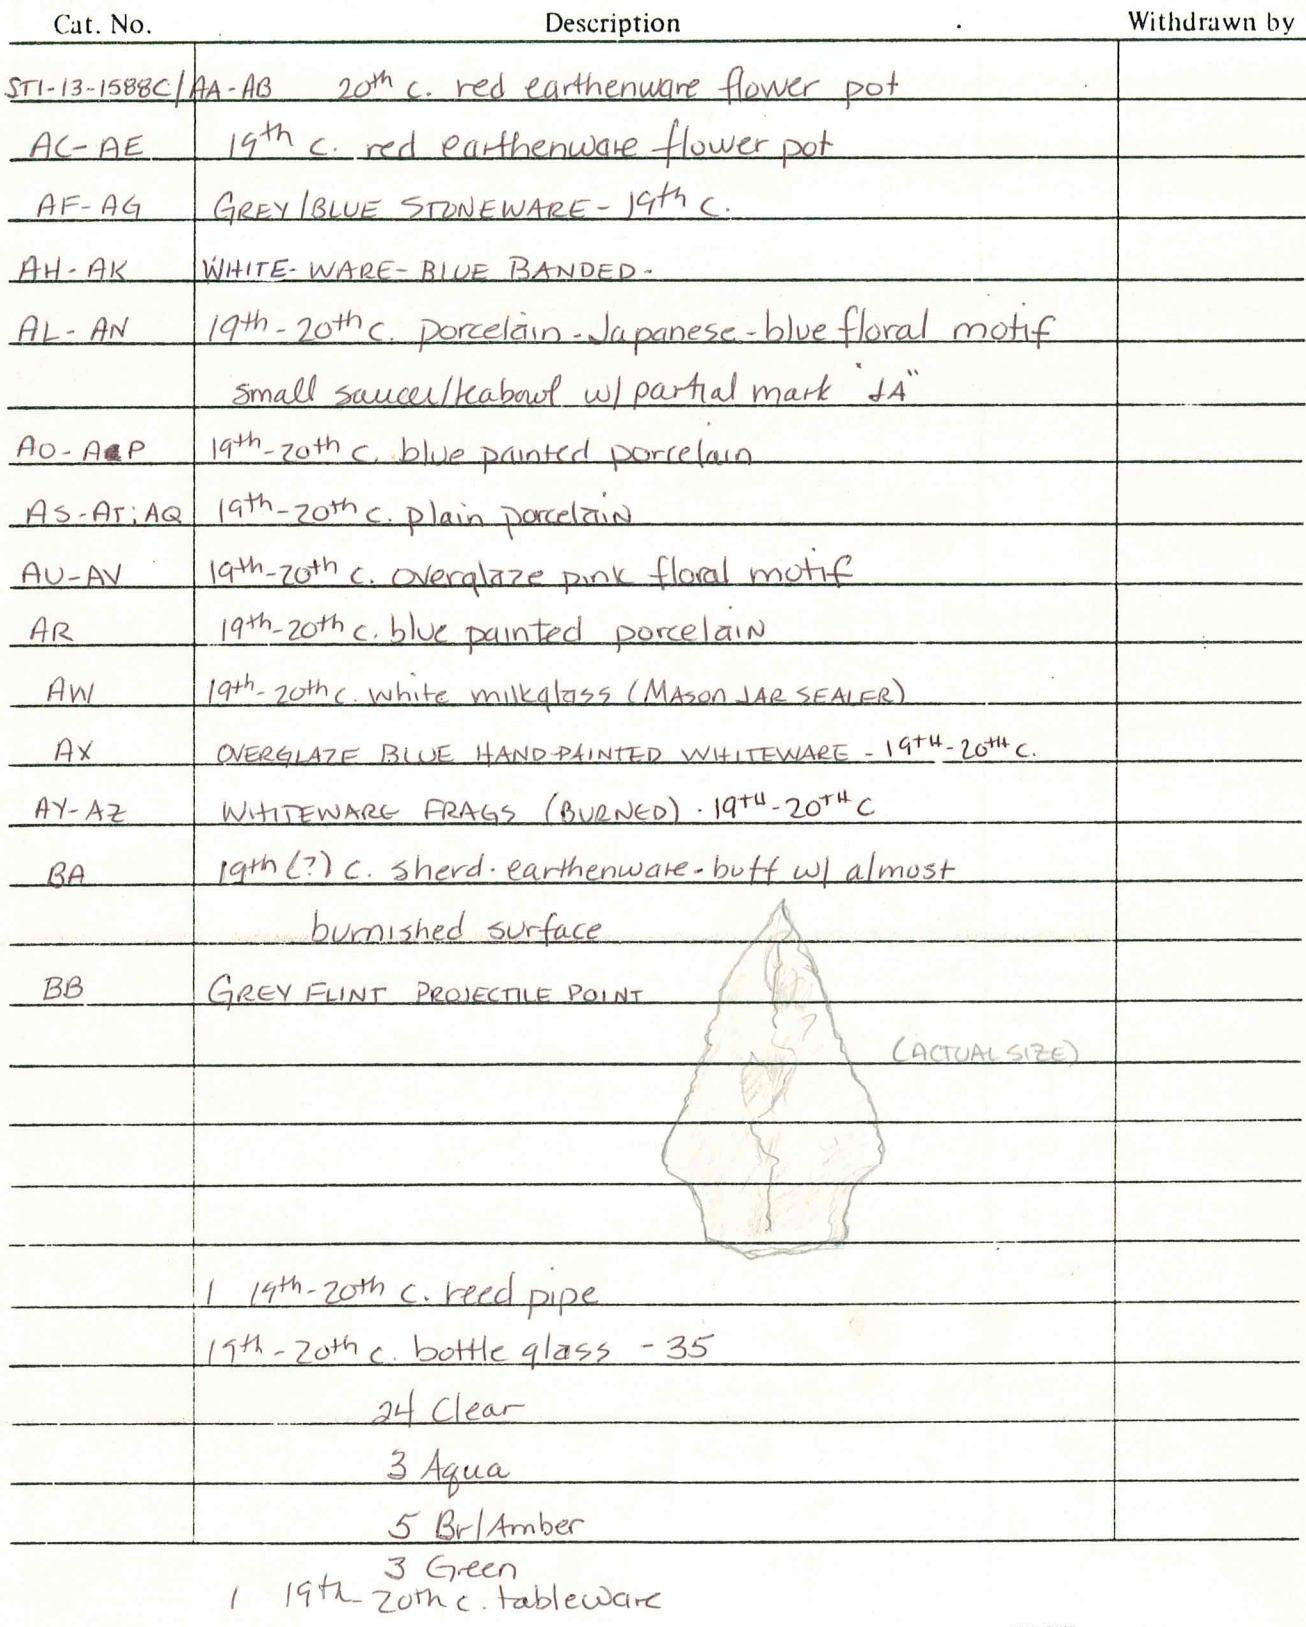 Cat. No. Description Withdrawn by
STI-13-1588C/AA-AB 20th c. red earthenware flower pot
AC-AE 19th c. red earthenware flower pot
AF-AG GREY/BLUE STONEWARE - 19th c.
AH-AK WHITE-WARE-BLUE BANDED-
AL-AN 19th-20th c. porcelain-Japanese-blue floral motif
small saucer/teabowl w/ partial mark "JA"
AO-AP 19th-20th c. blue painted porcelain
AS-AT; AQ 19th-20th c. plain porcelain
AU-AV 19th-20th c. overglaze pink floral motif
AR 19th-20th c. blue painted porcelain
AW 19th-20th c. white milkglass (MASON JAR SEALER)
AX OVERGLAZE BLUE HAND-PAINTED WHITEWARE - 19TH-20TH C.
AY-AZ WHITEWARE FRAGS (BURNED) · 19TH-20TH C
BA 19th (?) c. sherd · earthenware - buff w/ almost
burnished surface
BB GREY FLINT PROJECTILE POINT
(ACTUAL SIZE)
1 19th-20th c. reed pipe
19th-20th c. bottle glass - 35
24 Clear
3 Aqua
5 Br/Amber
3 Green
1 19th-20th c. tableware